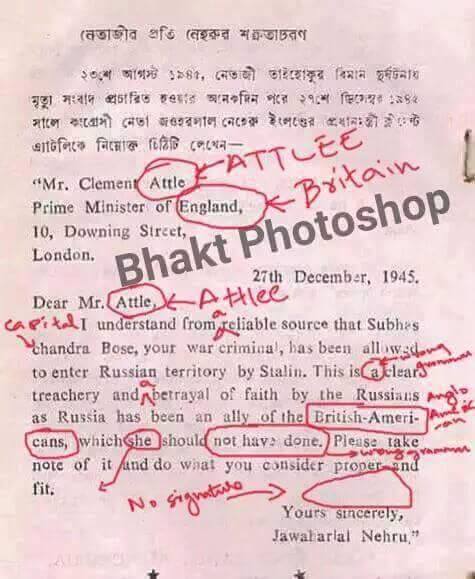 নেতাজীর প্রতি নেহেরুর শত্রুতাচরণ
২৩শে আগস্ট ১৯৪৫, নেতাজী তাইহোকুর বিমান দুর্ঘটনায়
মৃত্যু সংবাদ প্রচারিত হওয়ার অনেকদিন পরে ২৭শে ডিসেম্বর ১৯৪৫
সালে কংগ্রেসী নেতা জওহরলাল নেহেরু ইংলণ্ডের প্রধানমন্ত্রী ক্লিমেন্ট
এ্যাটলিকে নিম্নোক্ত চিঠিটি লেখেন—
ATTLEE
"Mr. Clement Attle
Britain
Prime Minister of England,
10, Downing Street,
London.
Bhakt Photoshop
27th December, 1945.
Dear Mr. Attle,
Attlee
capital
a
I understand from reliable source that Subhas
chandra Bose, your war criminal, has been allowed
wrong grammar
to enter Russian territory by Stalin. This is a clear
a
treachery and betrayal of faith by the Russians
Anglo American
as Russia has been an ally of the British-Ameri-
cans, which she should not have done. Please take
wrong grammar
note of it and do what you consider proper and
fit.
No signature
Yours sincerely,
Jawaharlal Nehru."